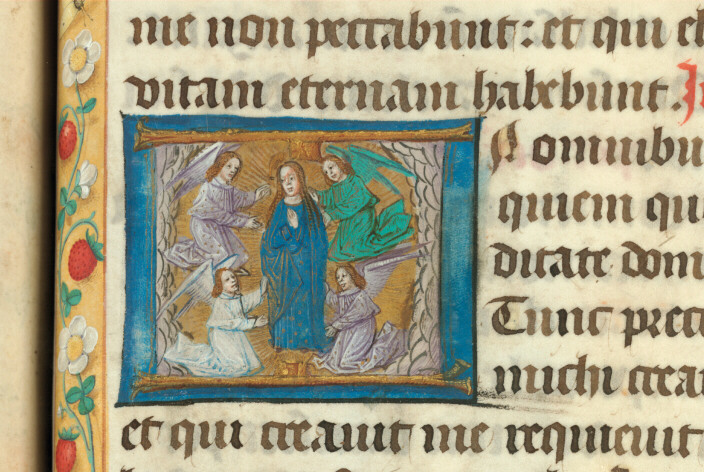 me non peccabunt: et qui el
vitam eternam habebunt.
omnibu
quiem qu
ditate dom
Tunc prec
michi crea
et qui creauit me requieuit